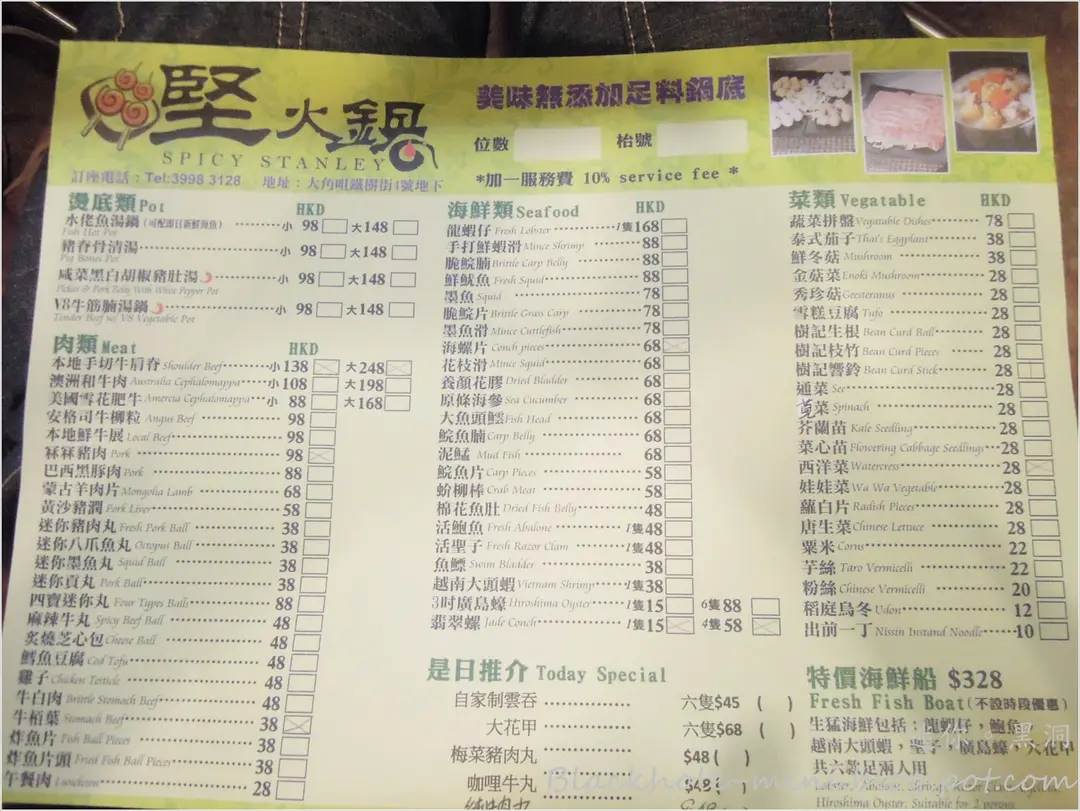 堅火鍋
SPICY STANLEY
訂座電話：Tel:3998 3128 地址：大角咀鐵樹街4號地下
美味無添加足料鍋底
位數 枱號
*加一服務費 10% service fee *
燙底類 Pot HKD
水佬魚湯鍋(可配即日新鮮海魚) 小 98 大148
Fish Hot Pot
豬脊骨清湯 小 98 大148
Pig Bones Pot
咸菜黑白胡椒豬肚湯 小 98 大148
Pickes & Pork Belly With White Pepper Pot
V8牛筋腩湯鍋 小 98 大148
Tender Beef w/ V8 Vegetable Pot
肉類 Meat HKD
本地手切牛肩脊 Shoulder Beef 小138 大248
澳洲和牛肉 Australia Cephalomappa 小108 大198
美國雪花肥牛 Amercia Cephalomappa 小 88 大168
安格司牛柳粒 Angus Beef 98
本地鮮牛展 Local Beef 98
冧冧豬肉 Pork 98
巴西黑豚肉 Pork 88
蒙古羊肉片 Mongolia Lamb 68
黃沙豬潤 Pork Liver 58
迷你豬肉丸 Fresh Pork Ball 38
迷你八爪魚丸 Octopus Ball 38
迷你墨魚丸 Squid Ball 38
迷你貢丸 Pork Ball 38
四寶迷你丸 Four Types Balls 88
麻辣牛丸 Spicy Beef Ball 48
炙燒芝心包 Cheese Ball 48
鱈魚豆腐 Cod Tofu 48
雞子 Chicken Testicle 48
牛白肉 Brittle Stomach Beef 48
牛栢葉 Stomach Beef 38
炸魚片 Fish Ball Pieces 38
炸魚片頭 Fried Fish Ball Pieces 38
午餐肉 Luncheon 28
海鮮類 Seafood HKD
龍蝦仔 Fresh Lobster 1隻168
手打鮮蝦滑 Mince Shrimp 88
脆鯇腩 Brittle Carp Belly 88
鮮魷魚 Fresh Squid 88
墨魚 Squid 78
脆鯇片 Brittle Grass Carp 78
墨魚滑 Mince Cuttlefish 78
海螺片 Conch pieces 68
花枝滑 Mince Squid 68
養顏花膠 Dried Bladder 68
原條海參 Sea Cucumber 68
大魚頭鱈 Fish Head 68
鯇魚腩 Carp Belly 68
泥鯭 Mud Fish 68
鯇魚片 Carp Pieces 58
蚧柳棒 Crab Meat 58
棉花魚肚 Dried Fish Belly 48
活鮑魚 Fresh Abalone 1隻48
活聖子 Fresh Razor Clam 1隻48
魚鰾 Swim Bladder 38
越南大頭蝦 Vietnam Shrimp 1隻38
3吋廣島蠔 Hiroshima Oyster 1隻15 6隻88
翡翠螺 Jade Conch 1隻15 4隻58
是日推介 Today Special
自家制雲吞 六隻$45 ( )
大花甲 六隻$68 ( )
梅菜豬肉丸 $48 ( )
咖喱牛丸 $48 ( )
菜類 Vegatable HKD
蔬菜拼盤 Vegetable Dishes 78
泰式茄子 Thai's Eggplant 38
鮮冬菇 Mushroom 38
金菇菜 Enoki Mushroom 28
秀珍菇 Geesteranus 28
雪糕豆腐 Tufo 28
樹記生根 Bean Curd Ball 28
樹記枝竹 Bean Curd Pieces 28
樹記響鈴 Bean Curd Stick 28
通菜 See 28
莧菜 Spinach 28
芥蘭苗 Kale Seedling 28
菜心苗 Flowering Cabbage Seedlings 28
西洋菜 Watercress 28
娃娃菜 Wa Wa Vegetable 28
蘿白片 Radish Pieces 28
唐生菜 Chinese Lettuce 28
粟米 Corns 22
芋絲 Taro Vermicelli 22
粉絲 Chinese Vermicelli 20
稻庭烏冬 Udon 12
出前一丁 Nissin Instand Noodle 10
特價海鮮船 $328
Fresh Fish Boat(不設時段優惠)
生猛海鮮包括：龍蝦仔，鮑魚
越南大頭蝦，聖子，廣島蠔，大花甲
共六款足兩人用
Hiroshima Oyster. Suitable for 2 persons